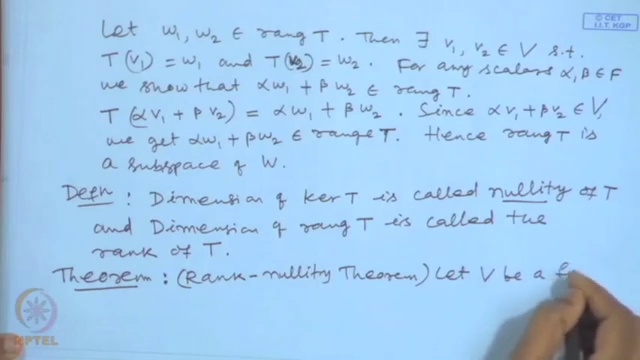 © CET
I.I.T. KGP
Let w₁, w₂ ∈ rang T. Then ∃ v₁, v₂ ∈ V s.t.
T(v₁) = w₁ and T(v₂) = w₂. For any scalars α, β ∈ F
we show that αw₁ + βw₂ ∈ rang T.
T(αv₁ + βv₂) = αw₁ + βw₂. Since αv₁ + βv₂ ∈ V,
we get αw₁ + βw₂ ∈ range T. Hence rang T is
a subspace of W.
Defn: Dimension of ker T is called nullity of T
and Dimension of rang T is called the
rank of T.
Theorem: (Rank-nullity Theorem) Let V be a f
NPTEL